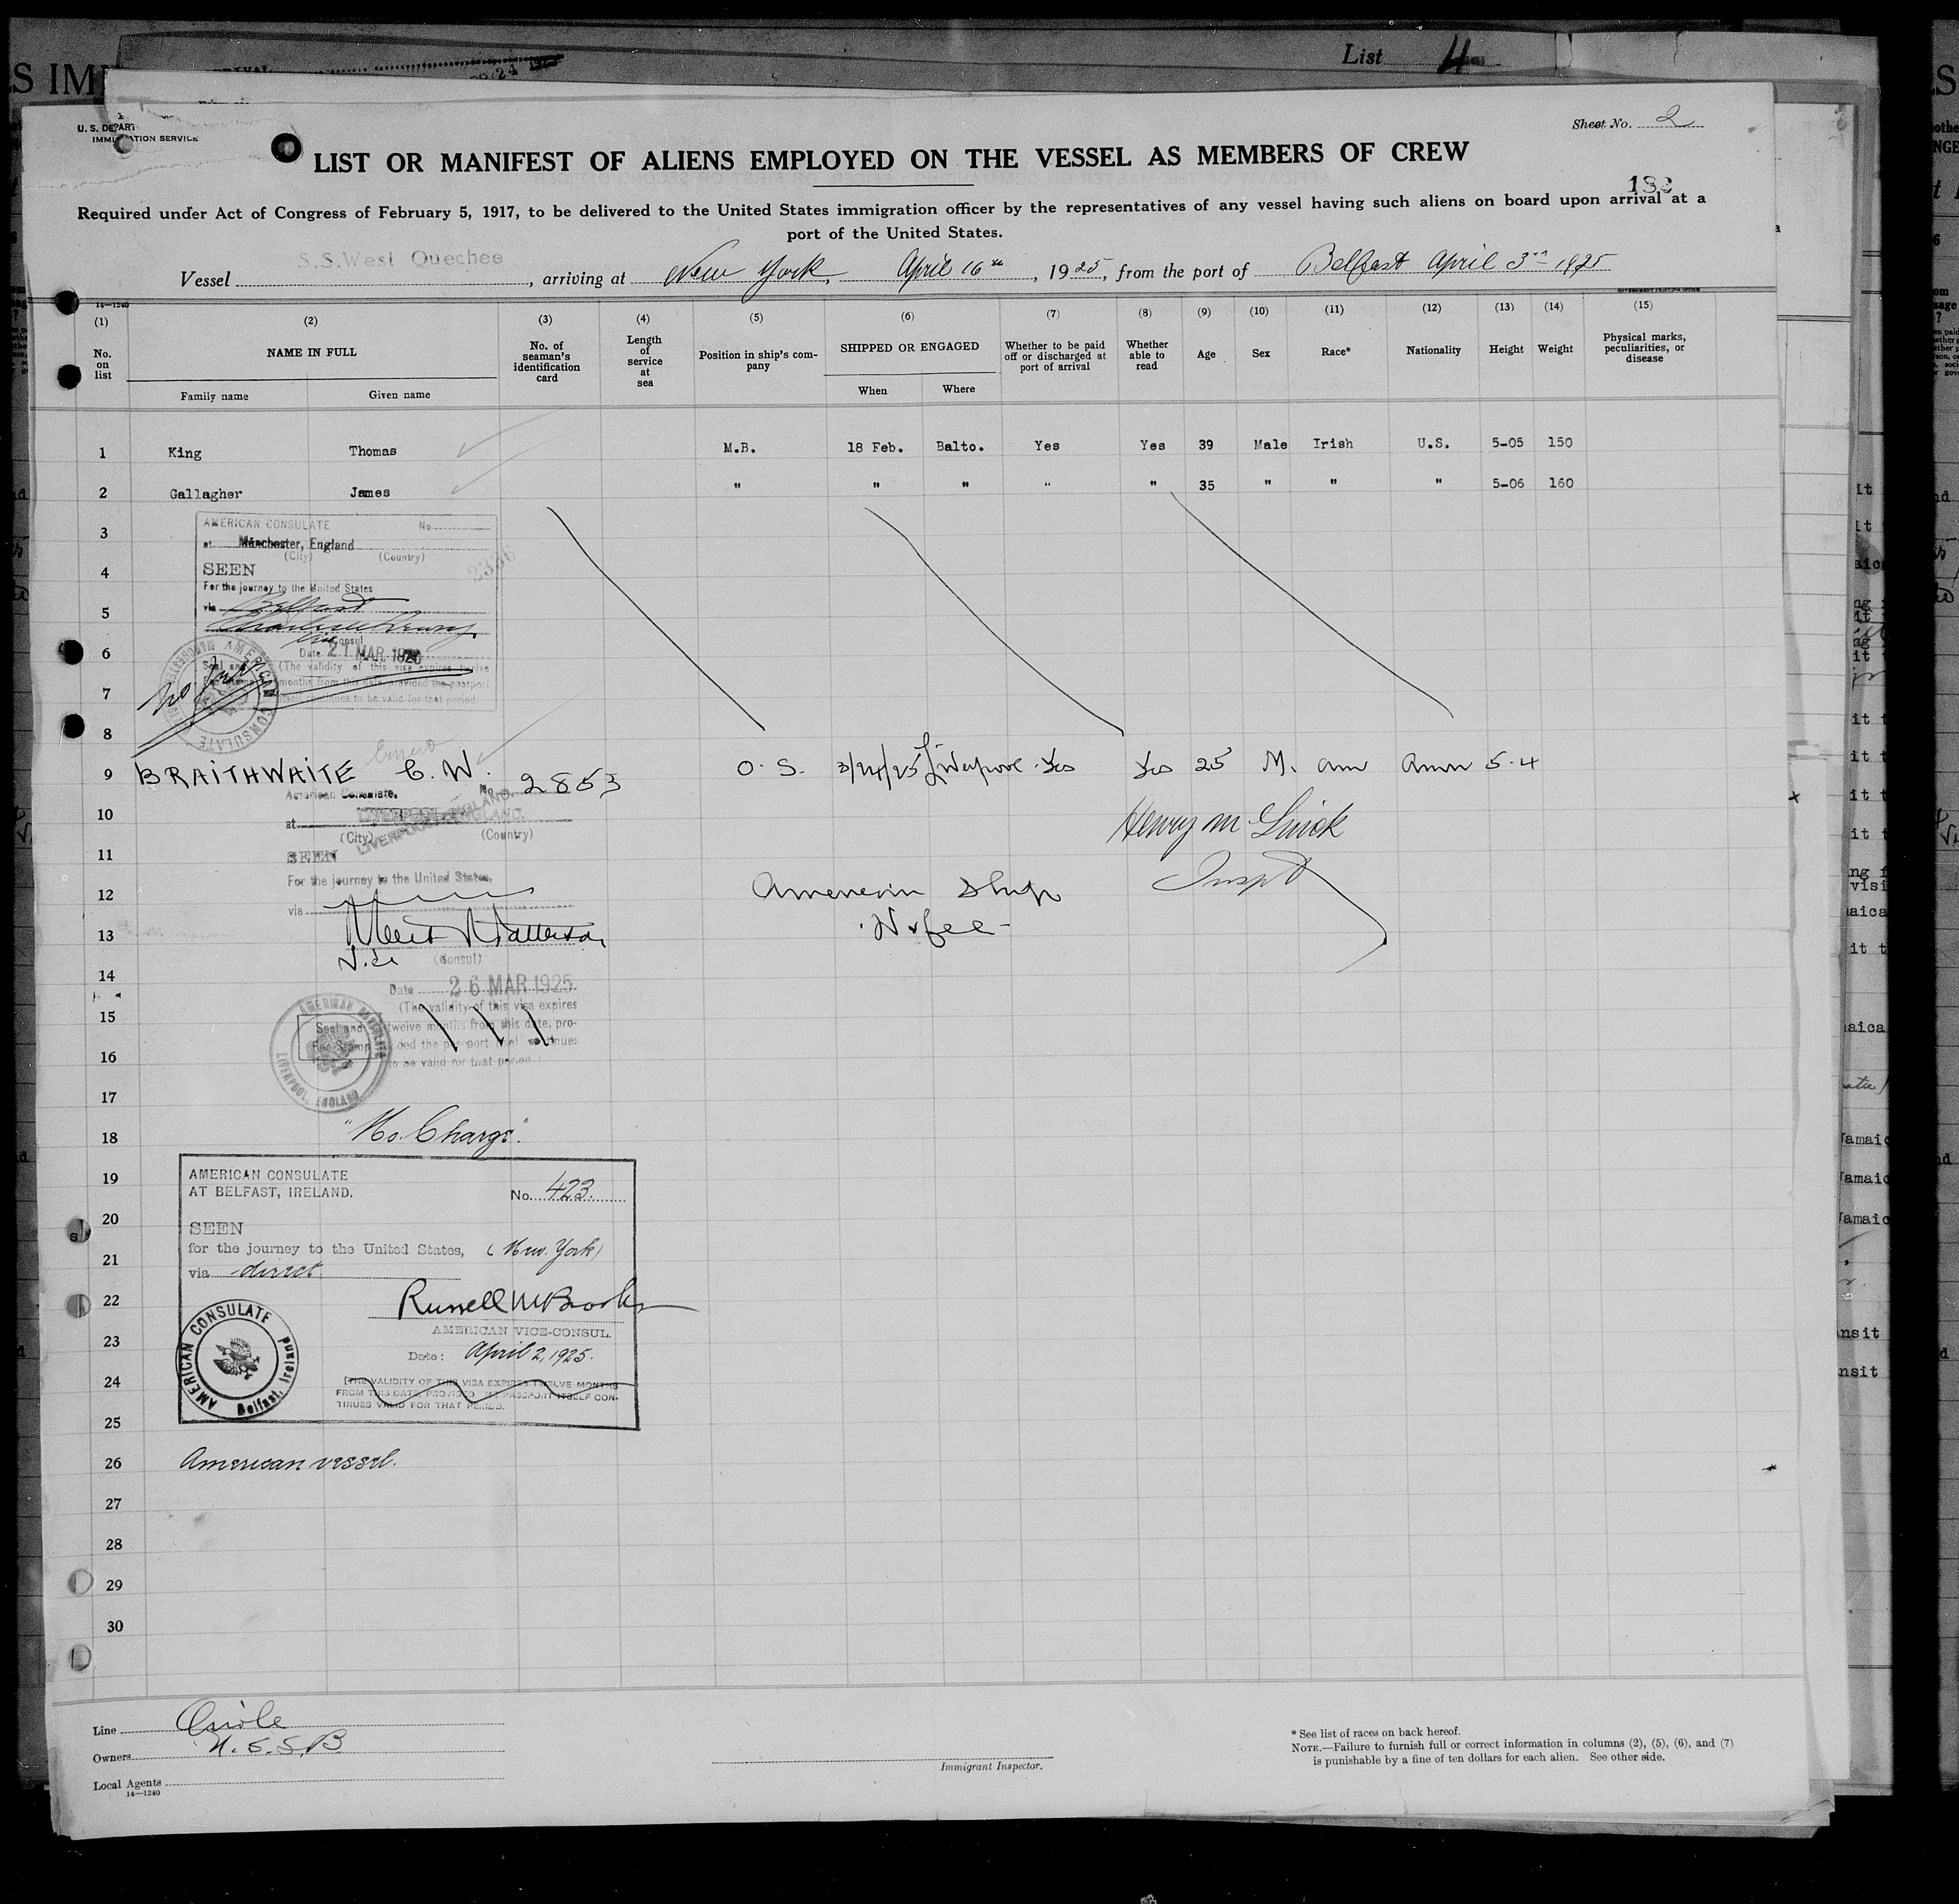 List 4
Sheet No. 2
U. S. DEPART
IMMIGRATION SERVICE
LIST OR MANIFEST OF ALIENS EMPLOYED ON THE VESSEL AS MEMBERS OF CREW
Required under Act of Congress of February 5, 1917, to be delivered to the United States immigration officer by the representatives of any vessel having such aliens on board upon arrival at a
port of the United States.
Vessel S.S.West Quechee, arriving at New York, April 16th, 1925, from the port of Belfast April 3rd 1925
14—1240
(1) (2) (3) (4) (5) (6) (7) (8) (9) (10) (11) (12) (13) (14) (15)
No. on list NAME IN FULL No. of seaman's identification card Length of service at sea Position in ship's company SHIPPED OR ENGAGED Whether to be paid off or discharged at port of arrival Whether able to read Age Sex Race* Nationality Height Weight Physical marks, peculiarities, or disease
Family name Given name When Where
1 King Thomas M.B. 18 Feb. Balto. Yes Yes 39 Male Irish U.S. 5-05 150
2 Gallagher James " " " " " 35 " " " 5-06 160
3
AMERICAN CONSULATE No
at Manchester, England
(City) (Country)
4
SEEN 2336
For the journey to the United States
5
via Belfast
Consul
6
Date 21 MAR 1925
Seal and (The validity of this visa expires twelve
7
months from this date provided the passport
itself continues to be valid for that period.
AMERICAN CONSULATE
8
Ernest
9 BRAITHWAITE C. W. 2853 O. S. 3/24/25 Liverpool Yes Yes 25 M. Am Amn 5.4
American Consulate. No.
10
at LIVERPOOL, ENGLAND.
(City) (Country)
Henry McGuick
11
SEEN
For the journey to the United States,
Inspt
12
American Ship
via
13
No fee
Patterson
(Consul)
14
Date 26 MAR 1925
(The validity of this visa expires
15
Seal and twelve months from this date, pro-
Fee Stamp vided the passport itself continues
16
to be valid for that period.
AMERICAN CONSULATE
LIVERPOOL, ENGLAND
17
18
"No. Charge".
19
AMERICAN CONSULATE
AT BELFAST, IRELAND. No. 423.
20
SEEN
for the journey to the United States, (New York)
21
via direct
22
Russell M Brooks
AMERICAN VICE-CONSUL.
23
Date: April 2, 1925.
AMERICAN CONSULATE
Belfast, Ireland
24
(THE VALIDITY OF THIS VISA EXPIRES TWELVE MONTHS
FROM THIS DATE, PROVIDED THE PASSPORT ITSELF CON-
TINUES VALID FOR THAT PERIOD.
25
26 American vessel.
27
28
29
30
Line Oriole
Owners U.S.S.B
Local Agents
14—1240
Immigrant Inspector.
* See list of races on back hereof.
NOTE.—Failure to furnish full or correct information in columns (2), (5), (6), and (7)
is punishable by a fine of ten dollars for each alien. See other side.